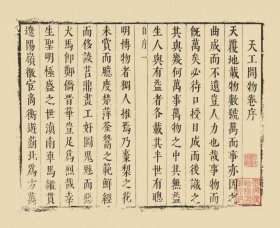 天工開物卷序
天覆地載物數號萬而事亦因之
曲成而不遺豈人力也哉事物而
既萬矣必待口授目成而後識之
其與幾何萬事萬物之中其無益
生人與有益者各載其半世有聰
序 一
明博物者稠人推焉乃棗梨之花
未賞而臆度楚萍釜鬵之範鮮經
而侈談莒鼎畫工好圖鬼魅而惡
犬馬即鄭僑晉華豈足為烈哉幸
生聖明極盛之世滇南車馬縱貫
遼陽嶺徼宦商衡遊薊北為方萬